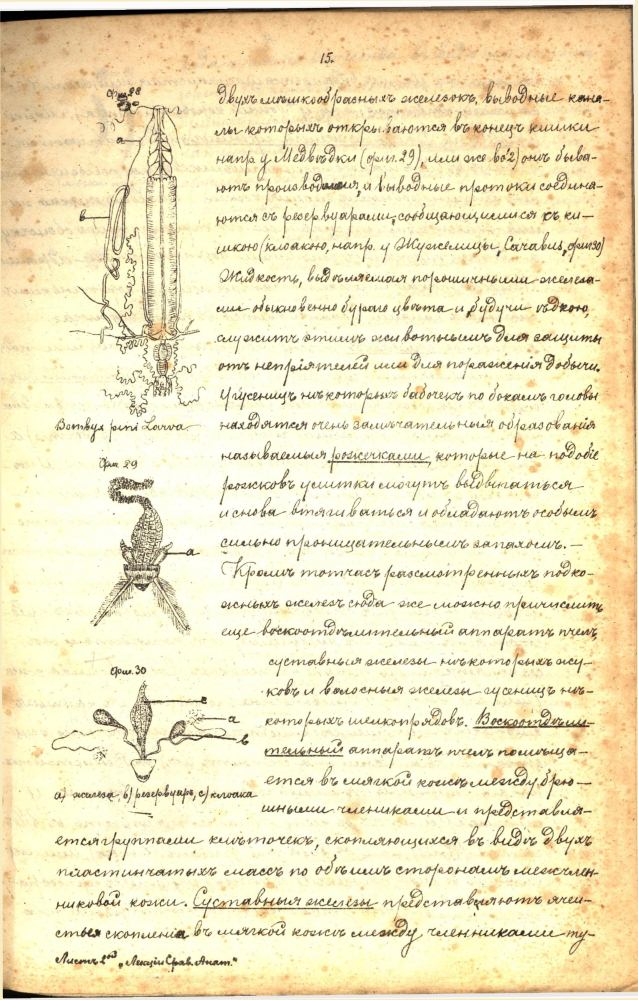 15.
Фиг. 28
a
b
Bombyx pini Larva
Фиг. 29
a
Фиг. 30
c
a
b
а) железа, b) резервуаръ, c) клоака
двухъ мѣшкообразныхъ железокъ, выводные кана-
лы которыхъ открываются въ конецъ кишки
напр. у Медвѣдки (фиг. 29), или же во 2) онѣ быва-
ютъ и выводные протоки соединя-
ются съ резервуарами, сообщающимися къ ки-
шкою (клоакою, напр. у Жужелицы, фиг. 30)
Жидкость, выдѣляемая порошичными железа-
ми обыкновенно бураго цвѣта и, будучи ѣдкою,
служитъ этимъ животнымъ для защиты
отъ непріятелей или для пораженія добычи.
У гусеницъ нѣкоторыхъ бабочекъ по бокамъ головы
находятся очень замѣчательныя образованія
называемыя рожечками, которые на подобіе
рожковъ улитки могутъ выдвигаться
и снова втягиваться и обладаютъ особымъ
сильно проницательнымъ запахомъ. —
Кромѣ тотчасъ разсмотренныхъ подко-
жныхъ железъ сюда же можно причислить
еще воскоотдѣлительный аппаратъ пчелъ,
суставныя железы нѣкоторыхъ жу-
ковъ и волосныя железы гусеницъ нѣ-
которыхъ шелкопрядовъ. Воскоотдѣли-
тельный аппаратъ пчелъ помѣща-
ется въ мягкой кожѣ между брю-
шными члениками и представля-
ется группами клѣточекъ, скопляющихся въ видѣ двухъ
пластинчатыхъ массъ по обѣимъ сторонамъ межчлен-
никовой кожи. Суставныя железы представляютъ ячеи-
стыя скопленія въ мягкой кожѣ между членниками ту-
Листъ 2ой „Лекціи Срав. Анат."